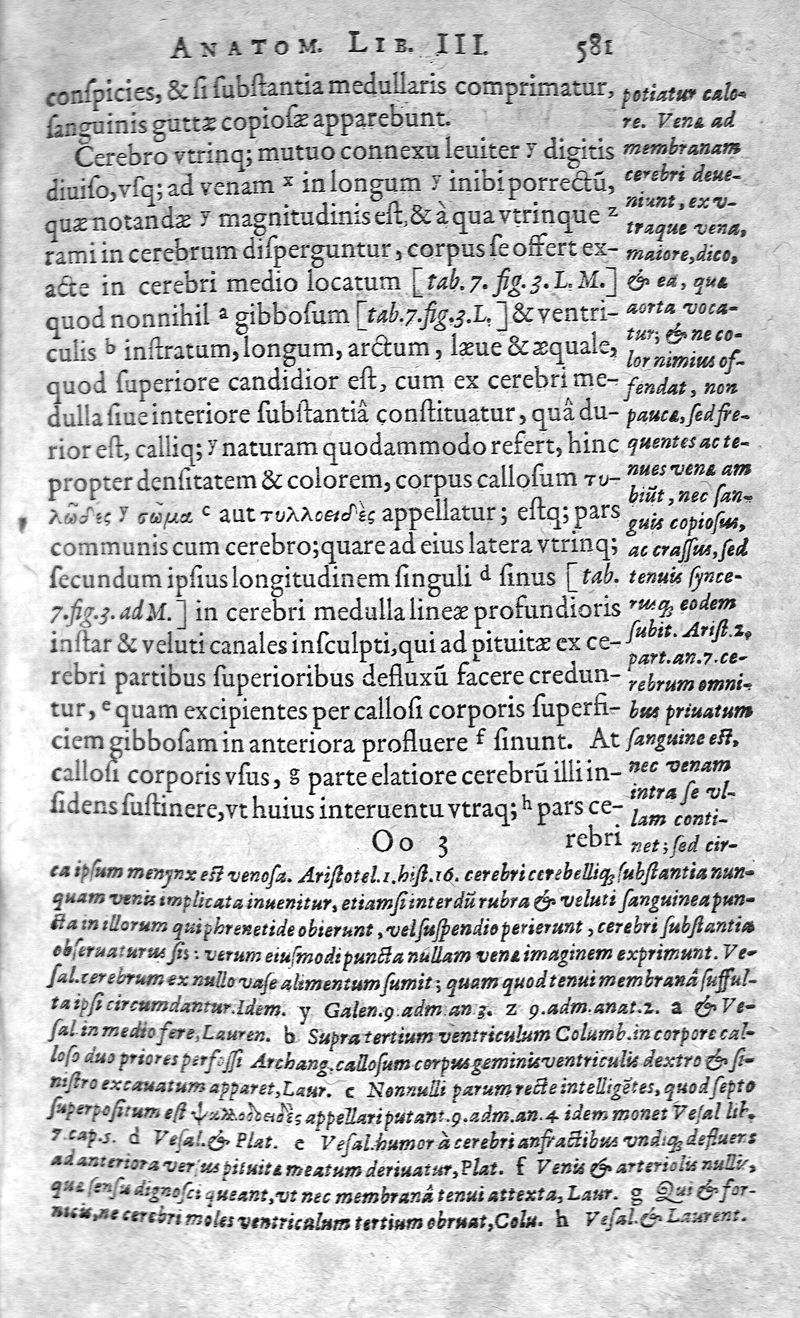 ANATOM. LIB. III. 581
conſpicies, & ſi ſubſtantia medullaris comprimatur,
ſanguinis guttæ copioſæ apparebunt.
Cerebro vtrinq; mutuo connexu leuiter y digitis
diuiſo, vſq; ad venam x in longum y inibi porrectū,
quæ notandæ y magnitudinis eſt, & à qua vtrinque z
rami in cerebrum diſperguntur, corpus ſe offert ex-
acte in cerebri medio locatum [tab. 7. fig. 3. L. M.]
quod nonnihil a gibboſum [tab. 7. fig. 3. L.] & ventri-
culis b inſtratum, longum, arctum, læue & æquale,
quod ſuperiore candidior eſt, cum ex cerebri me-
dulla ſiue interiore ſubſtantiâ conſtituatur, quâ du-
rior eſt, calliq; y naturam quodammodo refert, hinc
propter denſitatem & colorem, corpus calloſum τυ-
λῶδες y σῶμα c aut τυλλοειδὲς appellatur; eſtq; pars
communis cum cerebro; quare ad eius latera vtrinq;
ſecundum ipſius longitudinem ſinguli d ſinus [tab.
7. fig. 3. ad M.] in cerebri medulla lineæ profundioris
inſtar & veluti canales inſculpti, qui ad pituitæ ex ce-
rebri partibus ſuperioribus defluxū facere credun-
tur, e quam excipientes per calloſi corporis ſuperfi-
ciem gibboſam in anteriora profluere f ſinunt. At
calloſi corporis vſus, g parte elatiore cerebrū illi in-
ſidens ſuſtinere, vt huius interuentu vtraq; h pars ce-
Oo 3 rebri
potiatur calo-
re. Venæ ad
membranam
cerebri deue-
niunt, ex v-
traque vena,
maiore, dico,
& ea, quæ
aorta voca-
tur; & ne co-
lor nimius of-
fendat, non
paucæ, ſed fre-
quentes ac te-
nues venæ am
biūt, nec ſan-
guis copioſus,
ac craſſus, ſed
tenuis ſynce-
ruſq, eodem
ſubit. Ariſt. 2.
part. an. 7. ce-
rebrum omni-
bus priuatum
ſanguine eſt,
nec venam
intra ſe vl-
lam conti-
net; ſed cir-
ca ipſum menynx eſt venoſa. Ariſtotel. 1. hiſt. 16. cerebri cerebelliq, ſubſtantia nun-
quam venis implicata inuenitur, etiamſi interdū rubra & veluti ſanguinea pun-
cta in illorum qui phrenetide obierunt, vel ſuſpendio perierunt, cerebri ſubſtantia
obſeruaturus ſis: verum eiuſmodi puncta nullam venæ imaginem exprimunt. Ve-
ſal. cerebrum ex nullo vaſe alimentum ſumit; quam quod tenui membranâ ſufful-
ta ipſi circumdantur. Idem. y Galen. 9. adm. an 3. z 9. adm. anat. 2. a & Ve-
ſal. in medio fere, Lauren. b Supra tertium ventriculum Columb. in corpore cal-
loſo duo priores perfoſſi Archang. calloſum corpus geminis ventriculis dextro & ſi-
niſtro excauatum apparet, Laur. c Nonnulli parum recte intelligētes, quod ſepto
ſuperpoſitum eſt appellari putant. 9. adm. an. 4 idem monet Veſal lib.
7. cap. 5. d Veſal. & Plat. e Veſal. humor à cerebri anfractibus vndiq, defluens
ad anteriora verſus pituitæ meatum deriuatur, Plat. f Venis & arteriolis nullis,
quæ ſenſu dignoſci queant, vt nec membranâ tenui attexta, Laur. g Qui & for-
nicis, ne cerebri moles ventriculum tertium obruat, Colu. h Veſal. & Laurent.